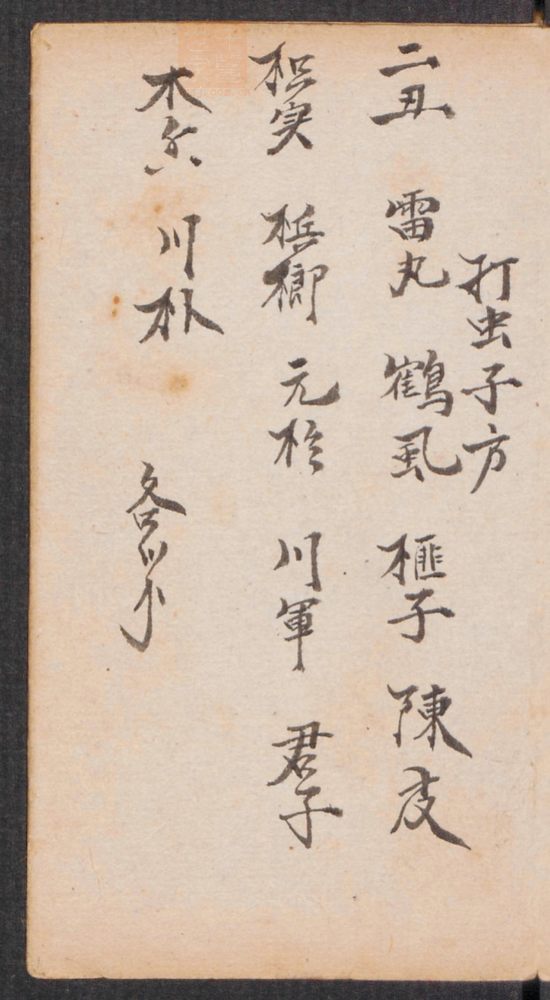 打虫子方
二丑 雷丸 鶴虱 榧子 陳皮
枳实 梹榔 元柗 川軍 君子
木香 川朴
各等